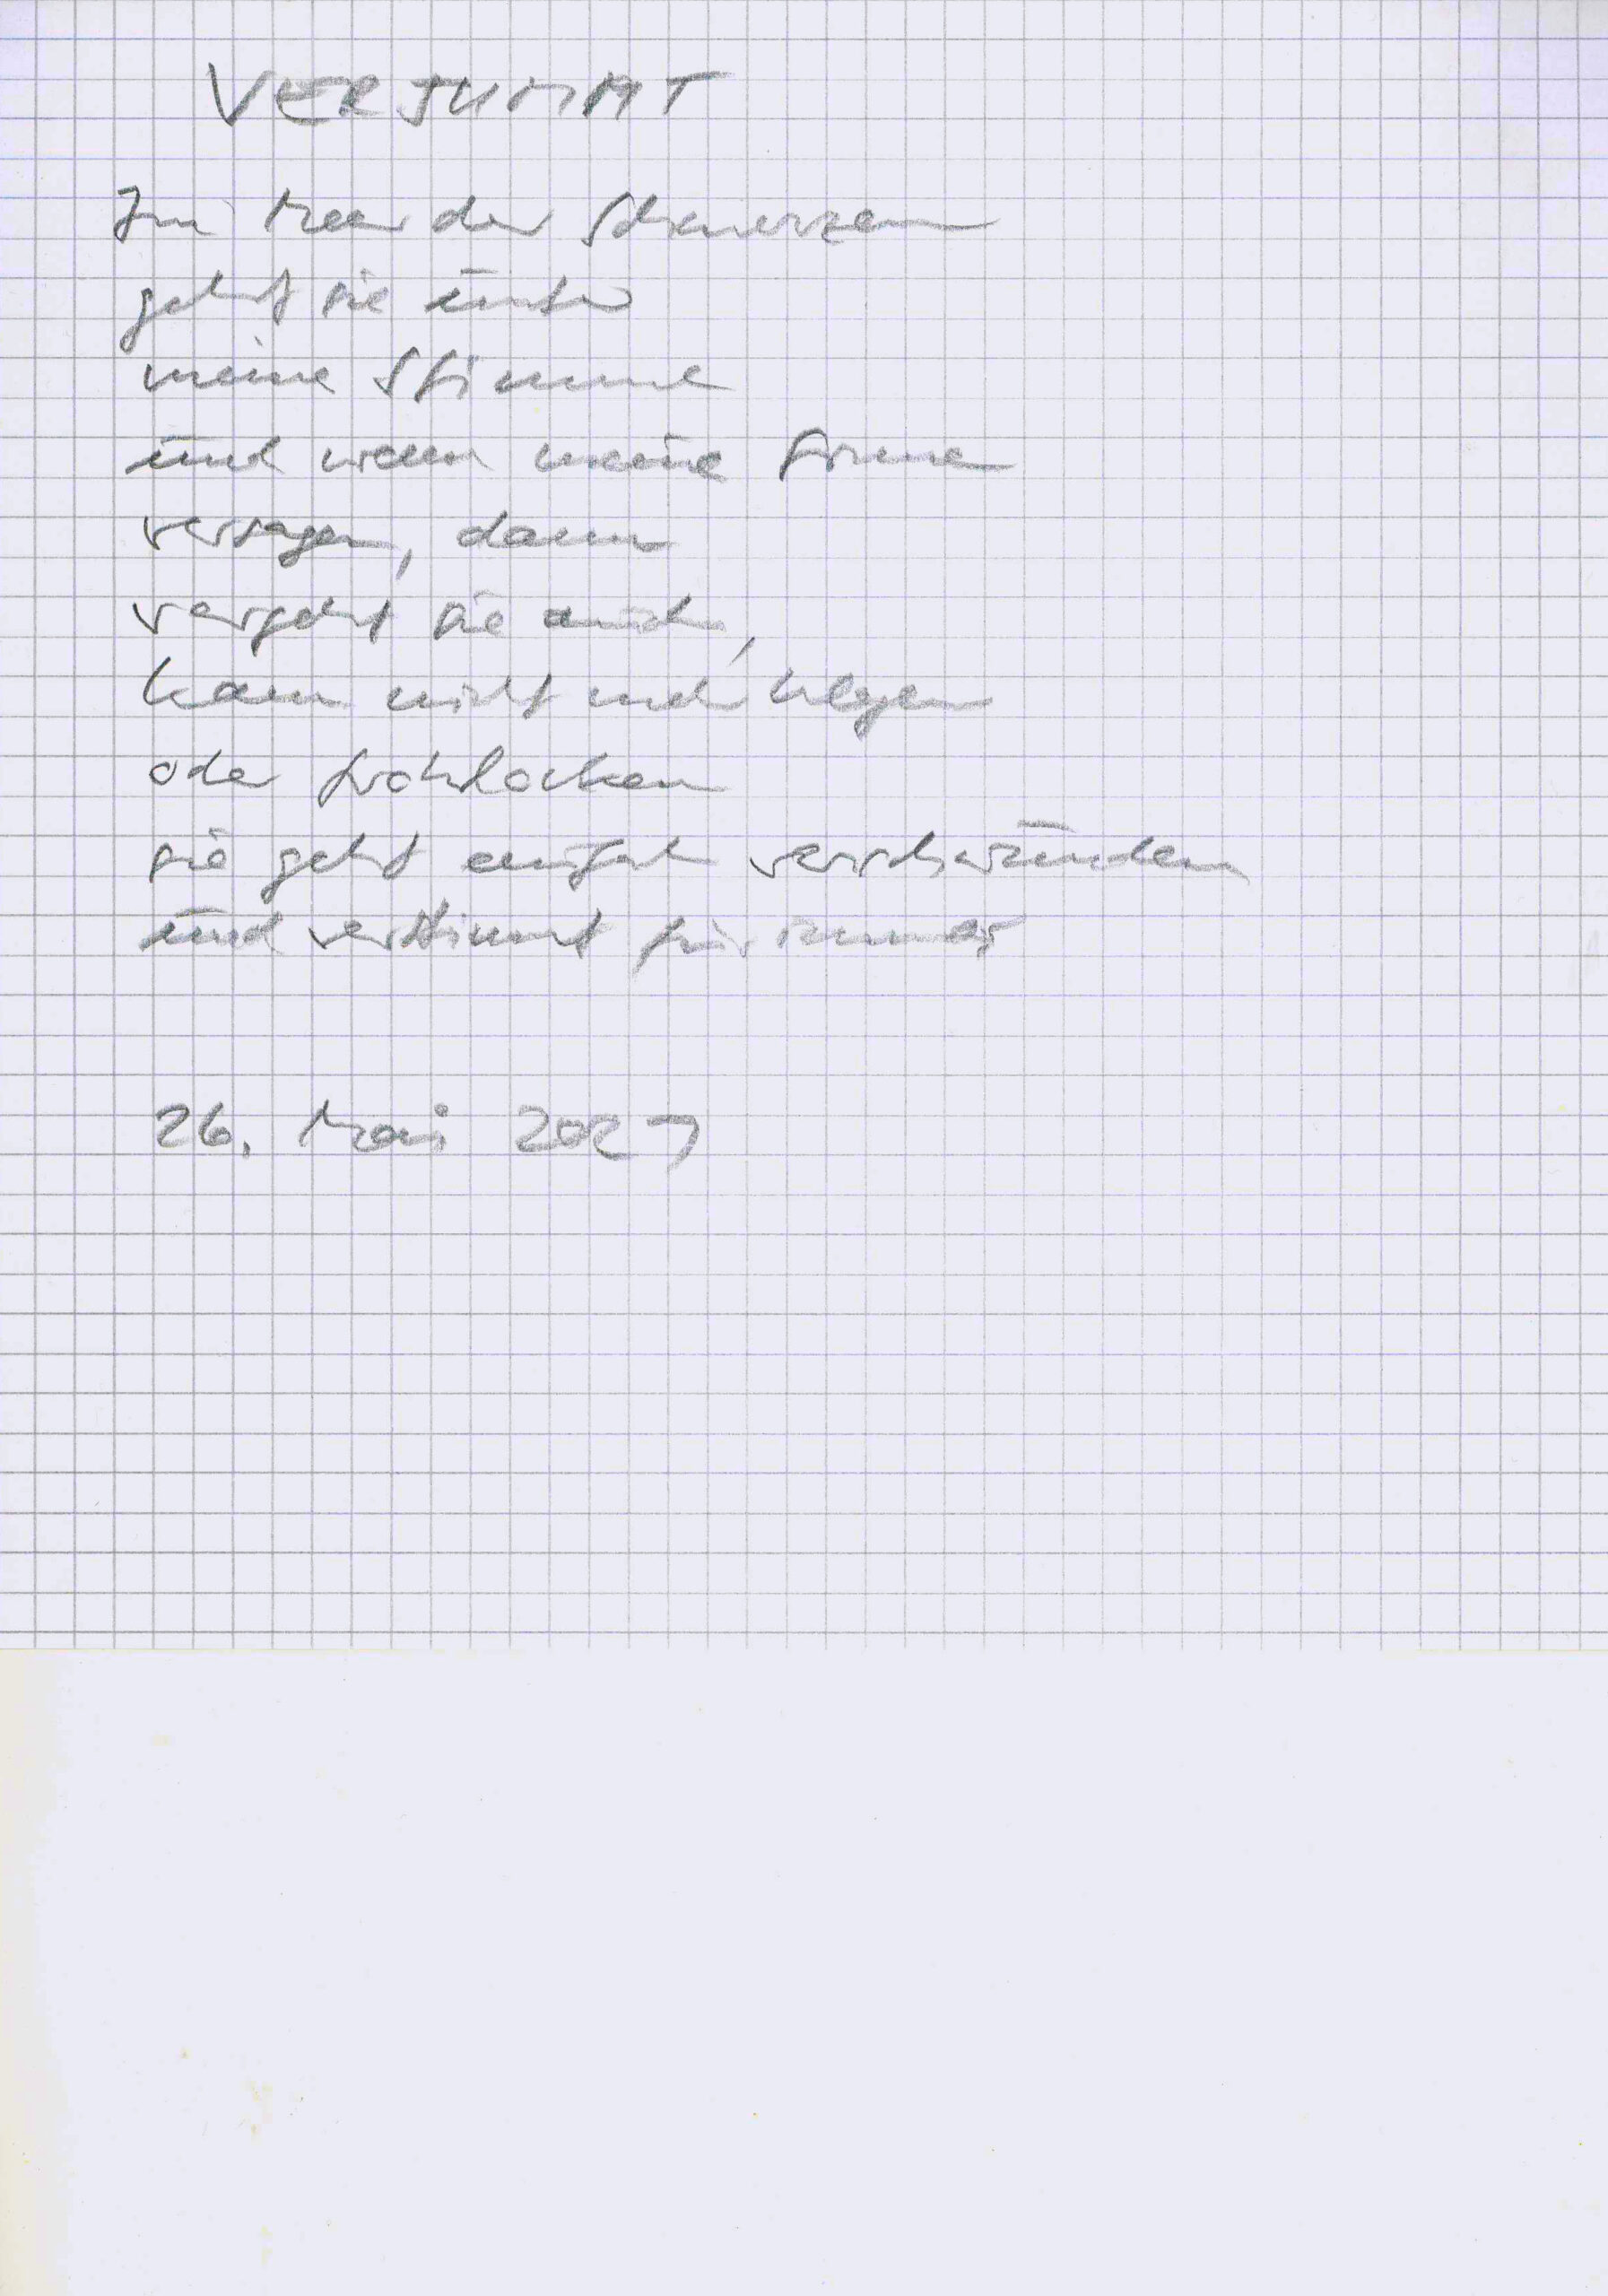 VERSTUMMT
Im Meer der Schmerzen
geht sie unter
meine Stimme
und wenn meine Sinne
versagen, dann
vergeht sie auch,
kann nicht mehr klagen
oder frohlocken
sie geht einfach verschwunden
und verstummt für immer
26. Mai